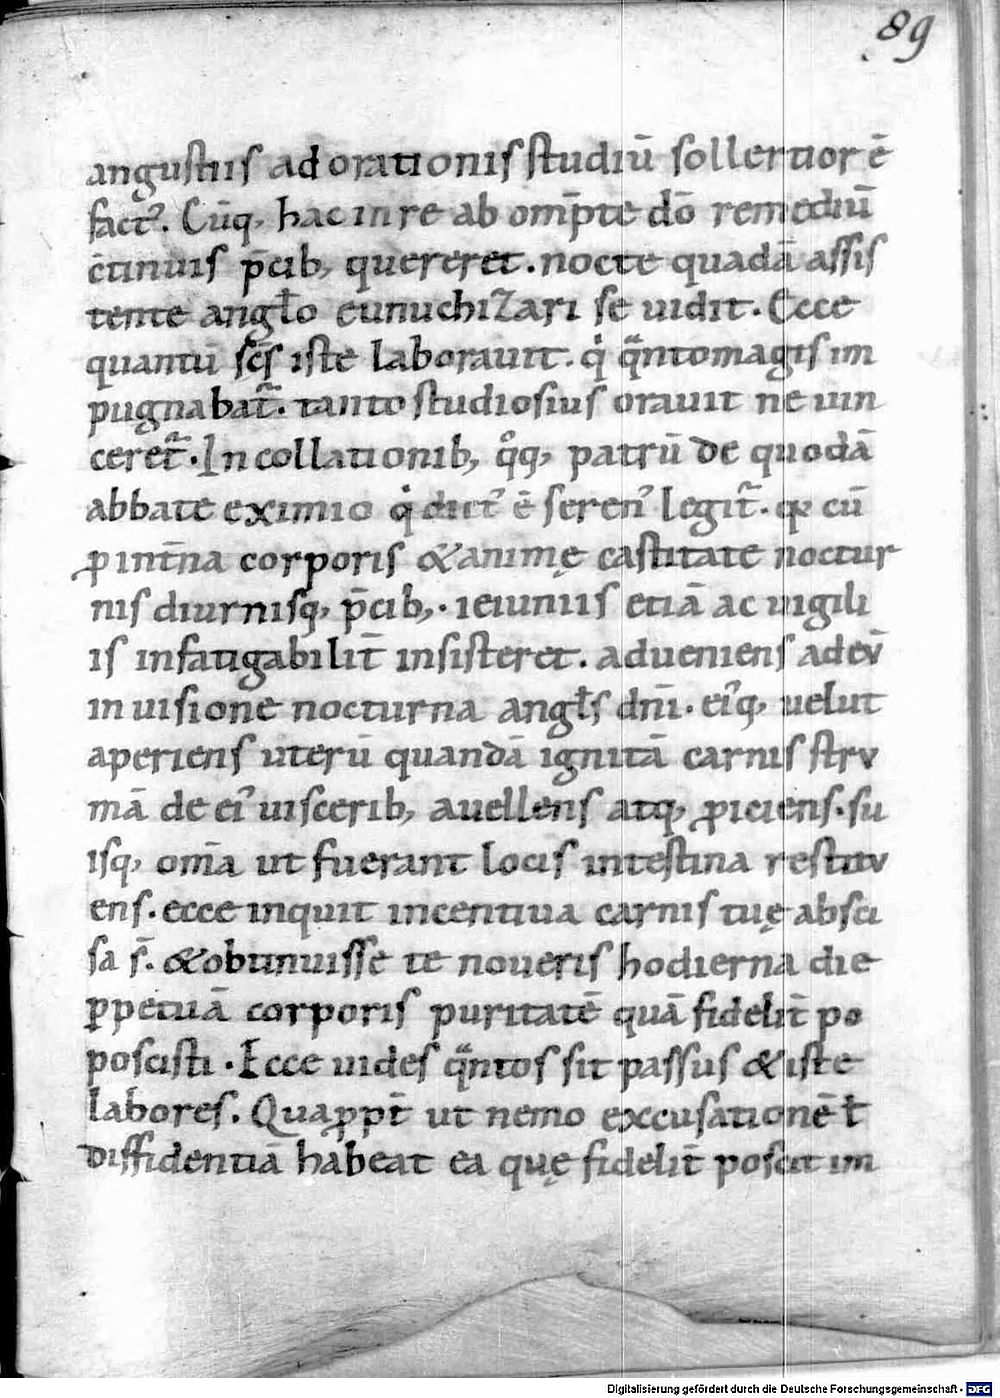 89
angustiis ad orationis studiū sollertior ē
fact᾿. Cūq, hac in re ab om̄pte dō remediū
c̄tinuis p̄cib, quereret. nocte quadā assis
tente angl̄o eunuchizari se uidit. Ecce
quantū sc̄s iste laborauit. qi qantomagis im
pugnabat᷑. tanto studiosius orauit ne uin
ceret᷑. In collationib, qoq, patrū de quodā
abbate eximio qi dict᾿ ē seren᾿ legit᷑. qꝫ cū
ꝓ int̄na corporis & animę castitate noctur
nis diurnisq, p̄cib,. ieiuniis etiā ac uigili
is infatigabilit̄ insisteret. adueniens ad ev̄
in uisione nocturna angl̄s dn̄i. ei᾿q, uelut
aperiens uterū quandā ignitā carnis strv
mā de ei᾿ uiscerib, auellens atq, ꝓiciens. su
isq, om̄a ut fuerant locis intestina restitv
ens. ecce inquit incentiua carnis tuę absci
sa s̄. & obtinuisse te noueris hodierna die
ꝑpetuā corporis puritatē quā fidelit̄ po
poscisti. Ecce uides qantos sit passus & iste
labores. Quaꝓpt̄ ut nemo exccusationē ł
diffidentiā habeat ea quę fidelit̄ poscit im
Digitalisierung gefördert durch die Deutsche Forschungsgemeinschaft - DFG